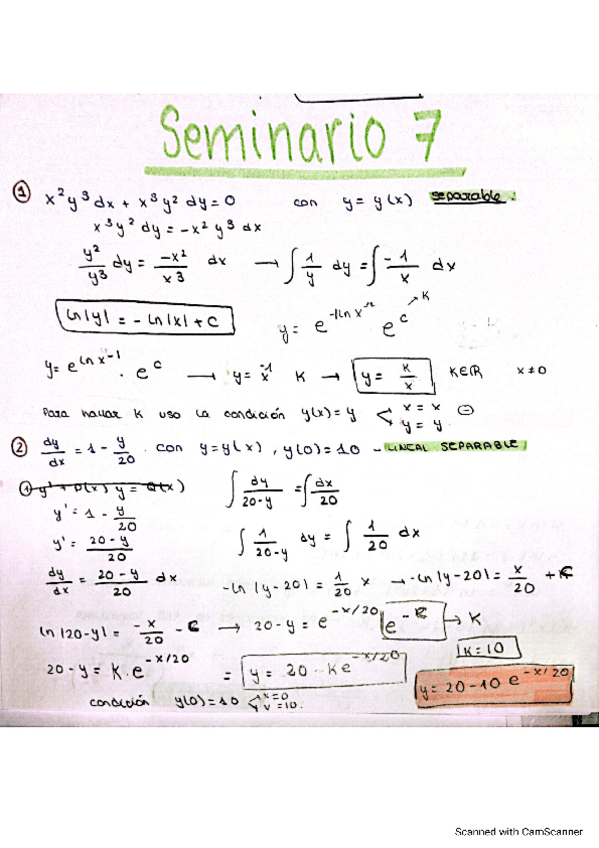 Seminario 7
① x²y³dx + x³y² dy = 0 con y = y(x) separable:
x³y² dy = -x² y³ dx
y²/y³ dy = -x²/x³ dx → ∫ 1/y dy = ∫ -1/x dx
ln|y| = -ln|x| + C y = e^(-ln x) e^c → K
y = e^(ln x^-1) · e^c → y = x^-1 K → y = K/x K∈ℝ x≠0
Para hallar K uso la condición y(x) = y < x = x
y = y
② dy/dx = 1 - y/20 con y = y(x), y(0) = 10 - LINEAL SEPARABLE
① y' + P(x) y = Q(x) ∫ dy/(20-y) = ∫ dx/20
y' = 1 - y/20
y' = (20-y)/20 ∫ 1/(20-y) dy = ∫ 1/20 dx
dy/dx = (20-y)/20 dx -ln|y-20| = 1/20 x → -ln|y-20| = x/20 + C
ln|20-y| = -x/20 - C → 20-y = e^(-x/20) e^(-C) → K
K = 10
20-y = K·e^(-x/20) = y = 20 - Ke^(-x/20) y = 20 - 10 e^(-x/20)
condición y(0) = 10 < x = 0
y = 10.
Scanned with CamScanner